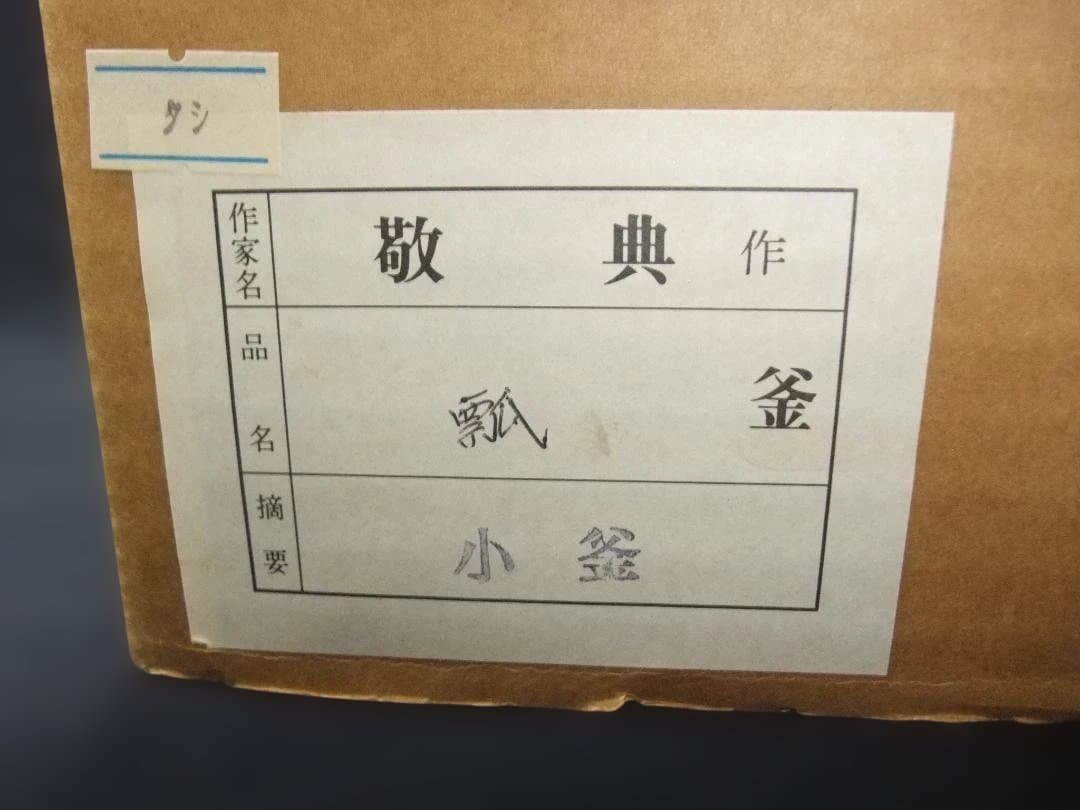 タシ
作家名 敬典作
品名 瓢釜
摘要 小釜